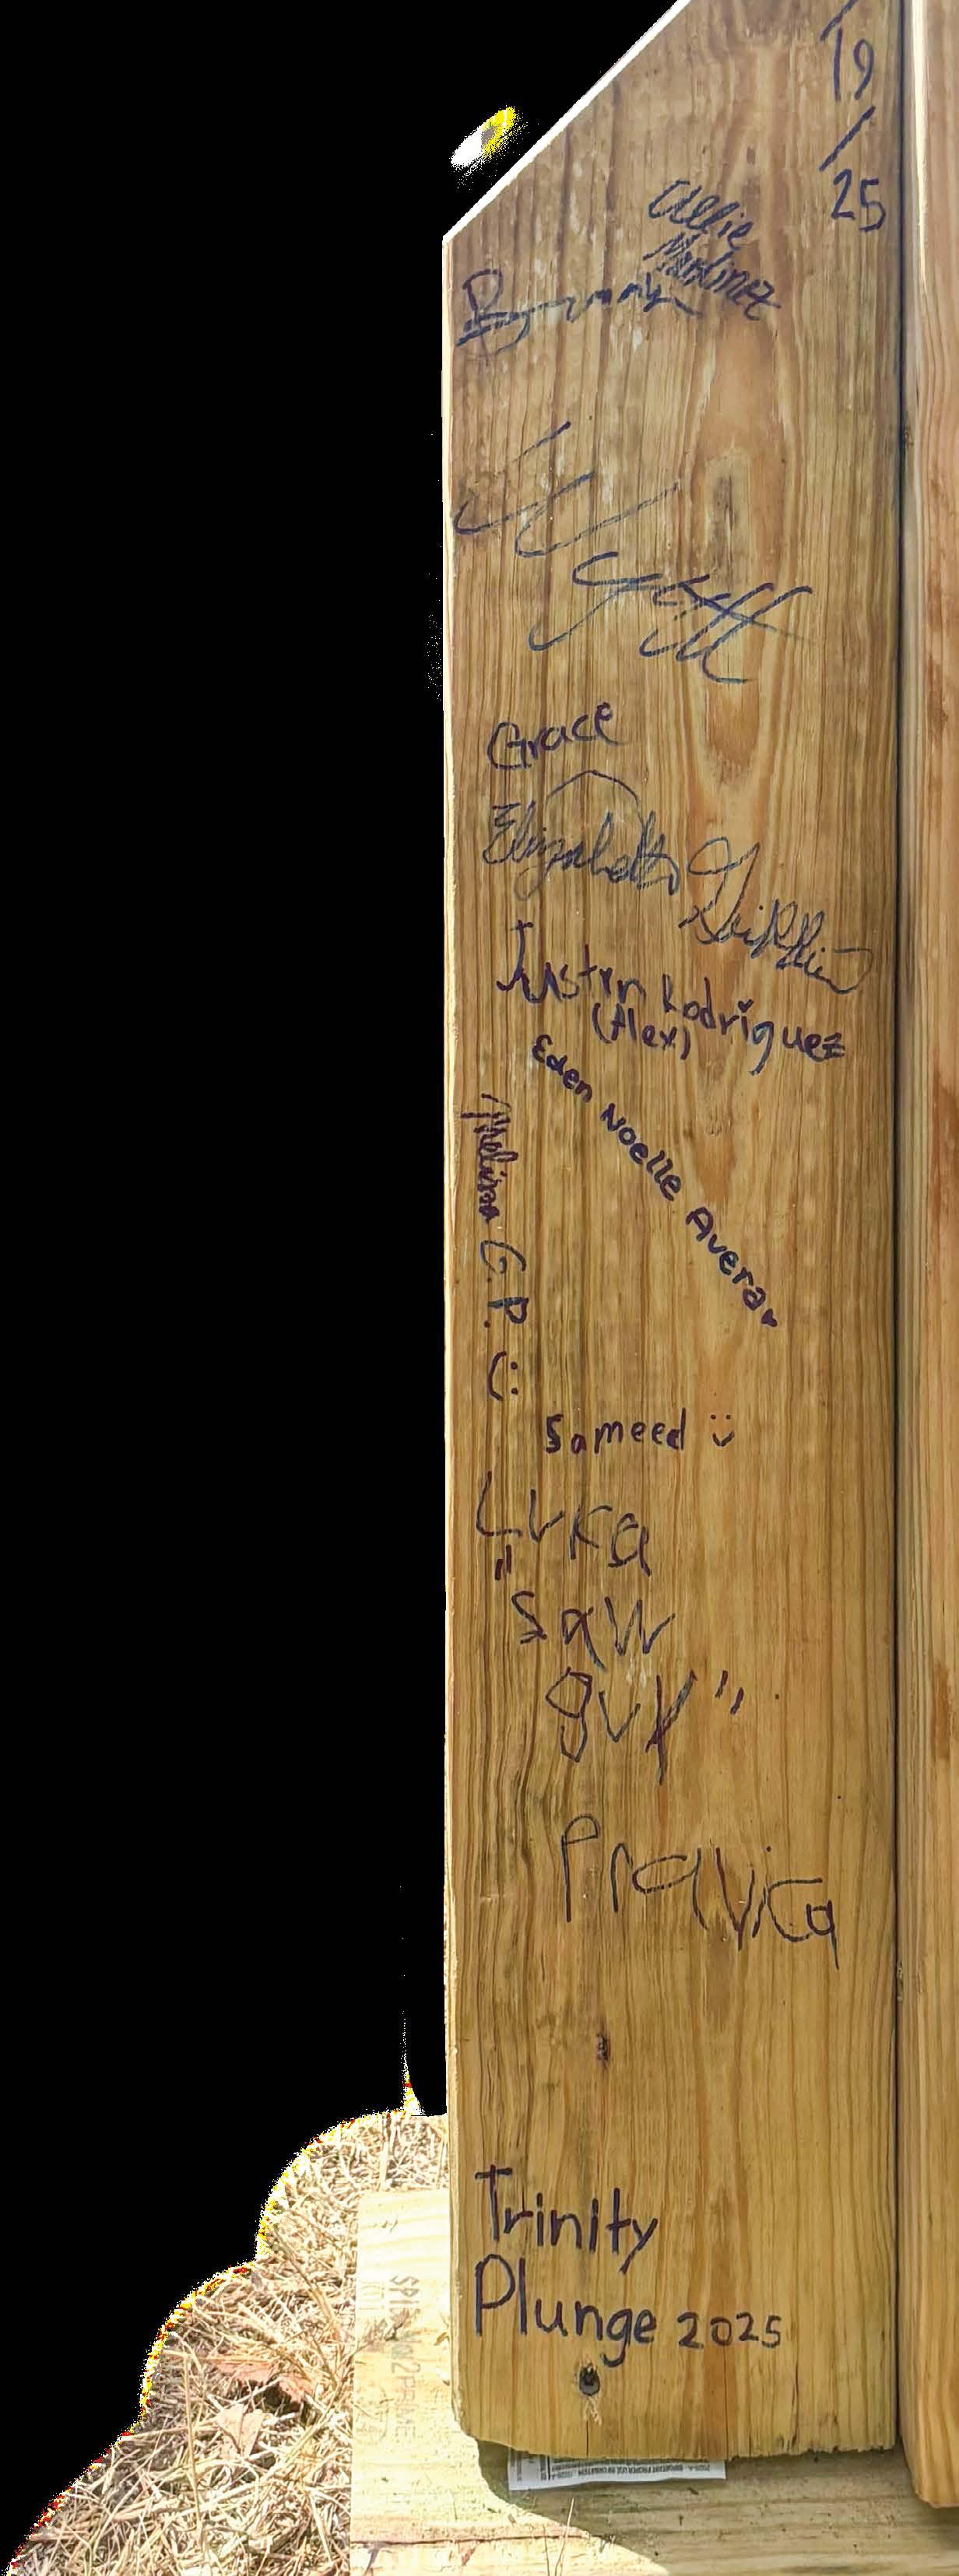 /
19
/
25
Allie
Martinez
Wyatt
Grace
Elizabeth Griffin
Justin Rodriguez
(Alex)
Eden Noelle Avera
Melissa G.P. (:
Sameed
Luka
"saw
guy"
Pravika
Trinity
Plunge 2025